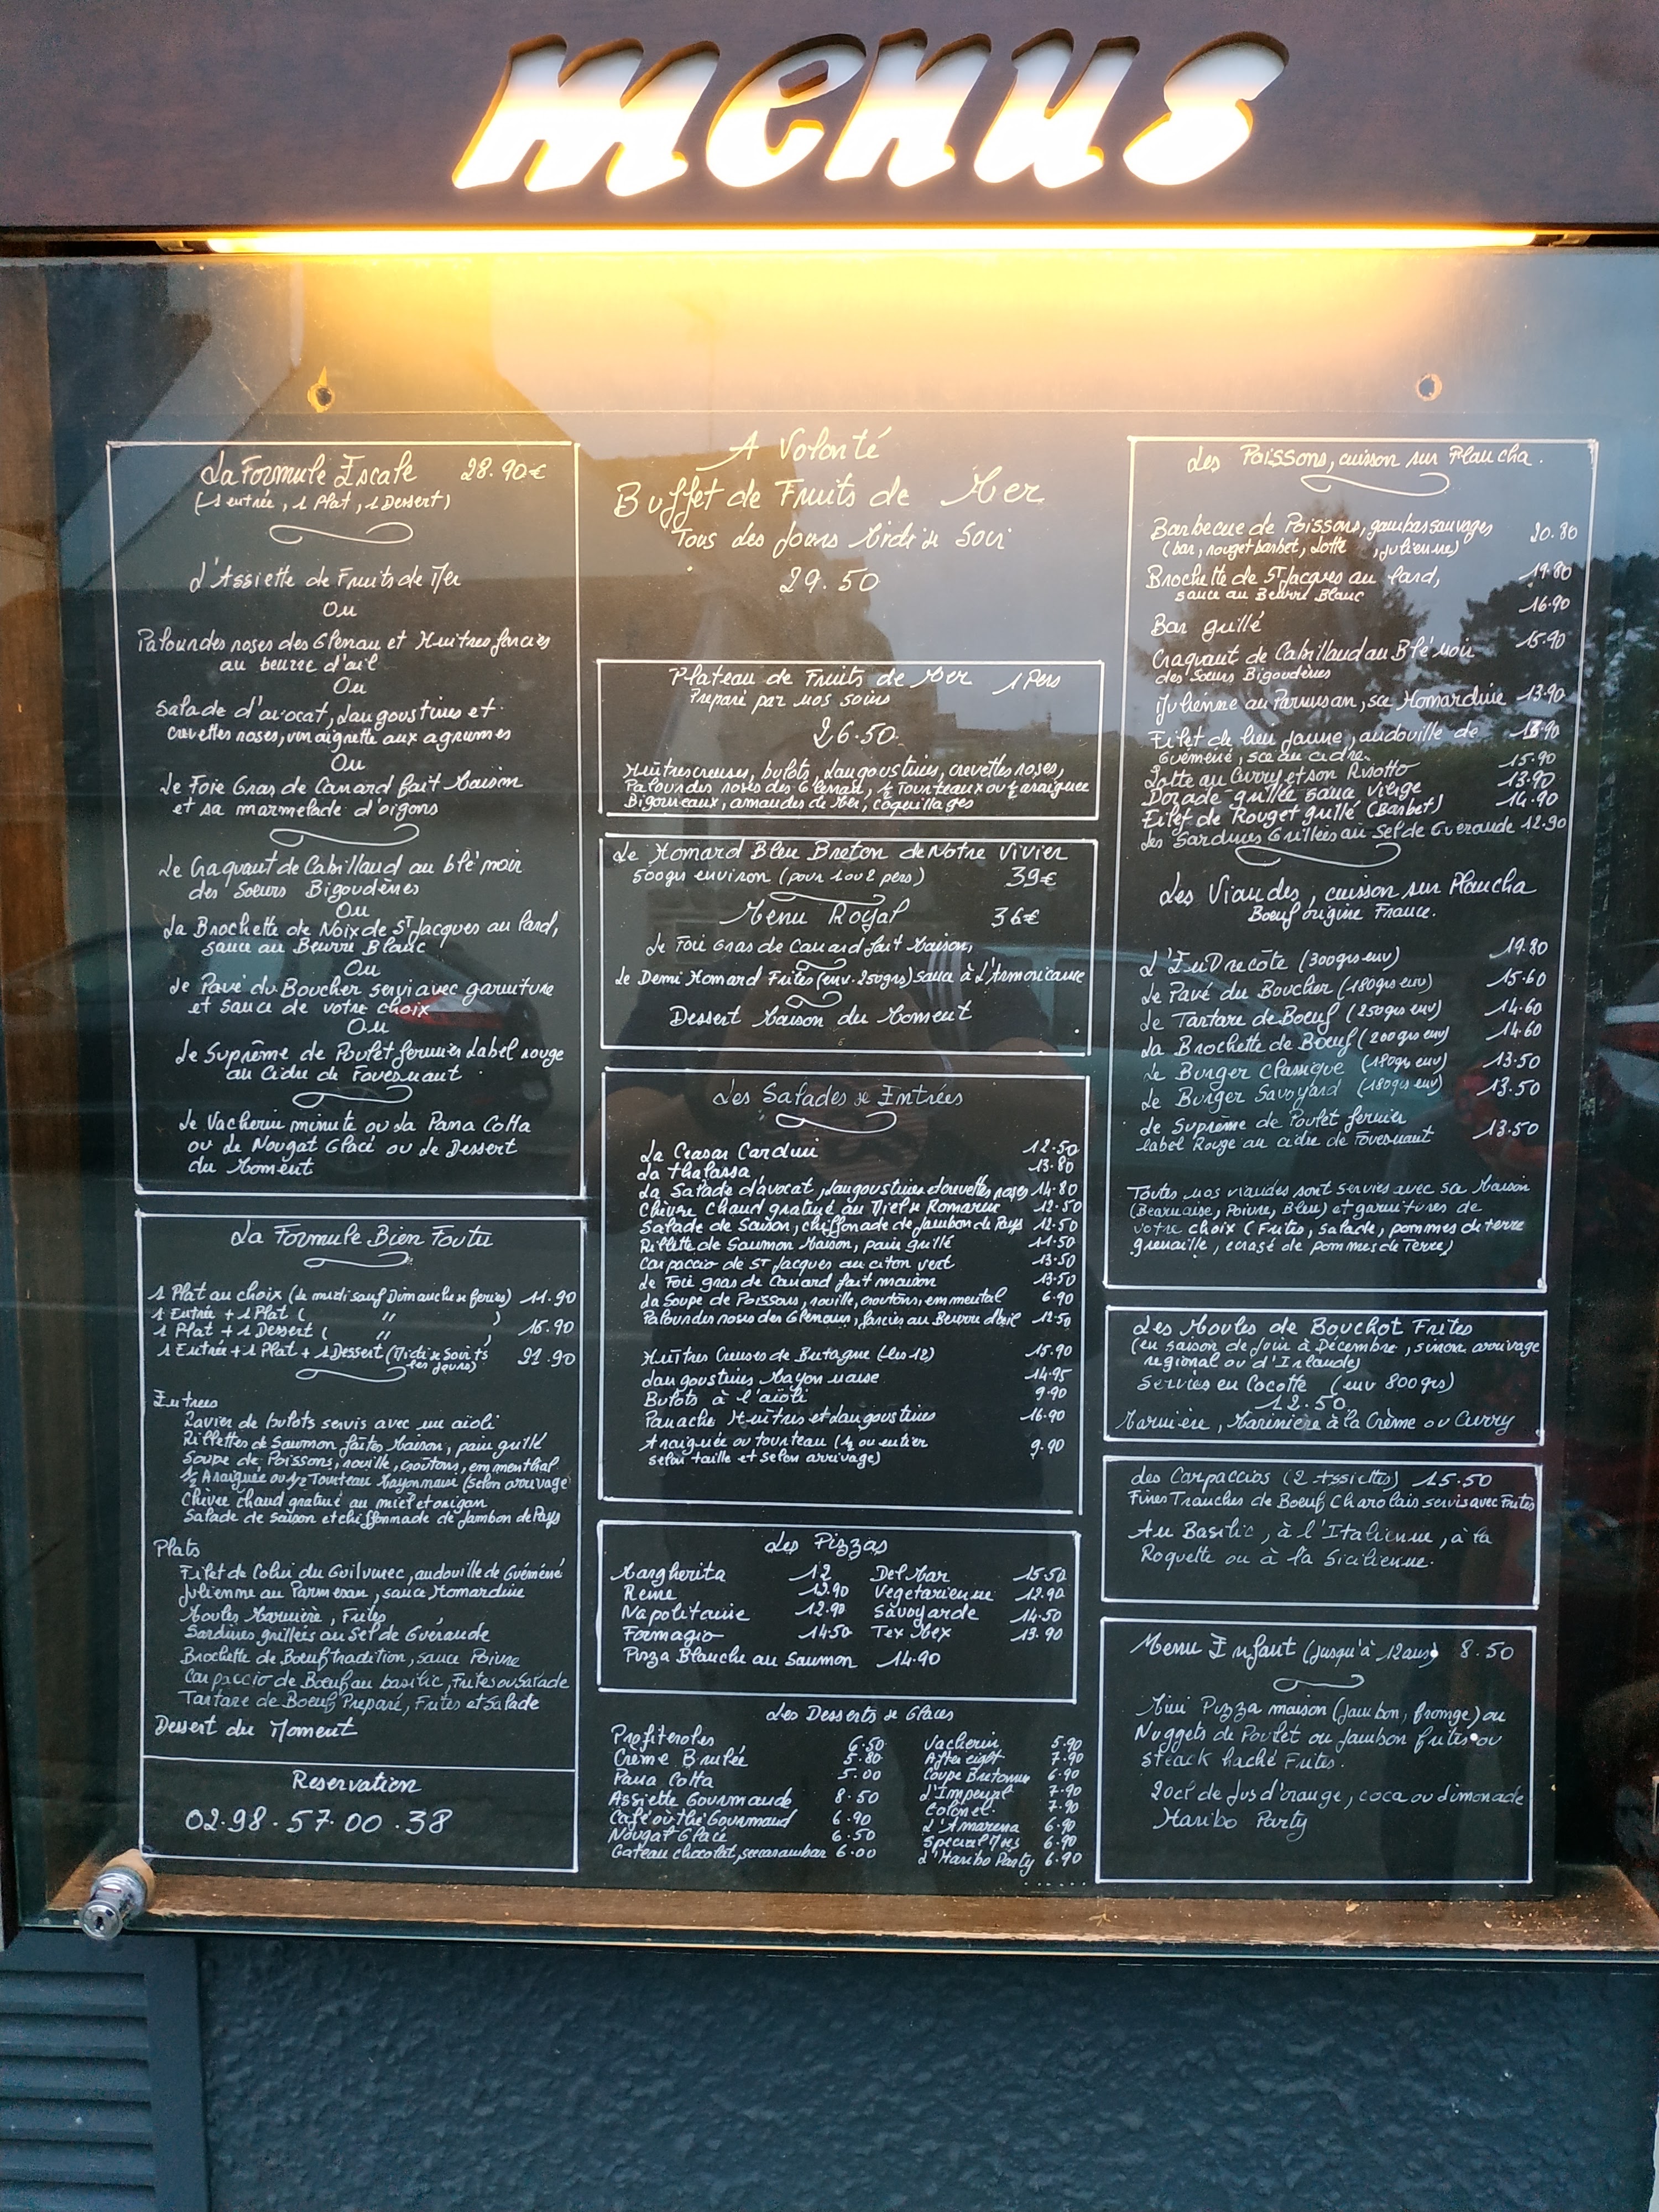 menus
La Formule Escale 28.90€
(1 entrée, 1 Plat, 1 Dessert)
L'Assiette de Fruits de Mer
Ou
Palourdes roses des Glenan et Huitres farcies
au beurre d'ail
Ou
Salade d'avocat, Langoustines et
crevettes roses, vinaigrette aux agrumes
Ou
Le Foie Gras de Canard fait Maison
et sa marmelade d'oignons
Le Craquant de Cabillaud au blé noir
des Soeurs Bigoudènes
Ou
La Brochette de Noix de St Jacques au Lard,
sauce au Beurre Blanc
Ou
Le Pavé du Boucher servi avec garniture
et sauce de votre choix
Ou
Le Suprême de Poulet fermier Label rouge
au Cidre de Fouesnant
Le Vacherin minute ou La Pana Cotta
ou Le Nougat Glacé ou Le Dessert
du Moment
La Formule Bien Foutu
1 Plat au choix (Le midi sauf Dimanche & feries) 11.90
1 Entrée + 1 Plat ( " )
1 Plat + 1 Dessert ( " ) 16.90
1 Entrée + 1 Plat + 1 Dessert (Midi & Soir ts les jours) 21.90
Entrees
Ravier de bulots servis avec un aïoli
Rillettes de Saumon faites Maison, pain grillé
Soupe de Poissons, rouille, croutons, emmenthal
½ Araignée ou ½ Tourteau Mayonnaise (selon arrivage)
Chèvre chaud gratiné au miel et origan
Salade de saison et chiffonnade de Jambon de Pays
Plats
Filet de Colin du Guilvinec, andouille de Guémené
Julienne au Parmesan, sauce Homardine
Moules Marinière, Frites
Sardines grillées au Sel de Guérande
Brochette de Boeuf tradition, sauce Poivre
Carpaccio de Boeuf au basilic, Frites ou Salade
Tartare de Boeuf Preparé, Frites et Salade
Dessert du Moment
Reservation
02.98.57.00.38
A Volonté
Buffet de Fruits de Mer
Tous les Jours Midi & Soir
29.50
Plateau de Fruits de Mer 1 Pers
Preparé par nos soins
26.50
Huitres creuses, bulots, Langoustines, crevettes roses,
Palourdes roses des Glenan, ½ Tourteaux ou ½ araignée
Bigorneaux, amandes de Mer, coquillages
Le Homard Bleu Breton de Notre Vivier
500grs environ (pour 1 ou 2 pers) 39€
Menu Royal 36€
Le Foie Gras de Canard fait Maison,
Le Demi Homard Frites (env. 250grs) sauce à L'Armoricaine
Dessert Maison du Moment
Les Salades & Entrées
La Ceasar Cardini 12.50
La Thalassa 13.80
La Salade d'avocat, Langoustines et crevettes roses 14.80
Chèvre Chaud gratiné au Miel & Romarin 12.50
Salade de Saison, chiffonade de Jambon de Pays 12.50
Rillette de Saumon Maison, pain grillé 11.50
Carpaccio de ST Jacques au citron vert 13.50
Le Foie gras de Canard fait maison 13.50
La Soupe de Poissons, rouille, croutons, emmental 6.90
Palourdes roses des Glenans, farcies au Beurre d'ail 12.50
Huîtres Creuses de Bretagne (Les 12) 15.90
Langoustines Mayonnaise 14.95
Bulots à l'aïoli 9.90
Panaché Huitres et Langoustines 16.90
Araignée ou tourteau (½ ou entier 9.90
selon taille et selon arrivage)
Les Pizzas
Margherita 12 Del Mar 15.50
Reine 12.90 Vegetarienne 12.90
Napolitaine 12.90 Savoyarde 14.50
Formagio 14.50 Tex Mex 13.90
Pizza Blanche au Saumon 14.90
Les Desserts & Glaces
Profiteroles 6.50 Vacherin 5.90
Crème Brulée 5.80 After eight 7.90
Pana Cotta 5.00 Coupe Bretonne 6.90
Assiette Gourmande 8.50 L'Imperial 7.90
Café ou thé Gourmand 6.90 Colonel 7.90
Nougat Glacé 6.50 L'Amarena 6.90
Gateau chocolat, sce carambar 6.00 Special 6.90
L'Haribo Party 6.90
Les Poissons, cuisson sur Plancha.
Barbecue de Poissons, gambas sauvages 20.80
(bar, rouget barbet, Lotte, Julienne)
Brochette de ST Jacques au Lard, 19.80
sauce au Beurre Blanc
Bar grillé 16.90
Craquant de Cabillaud au Blé noir 15.90
des Soeurs Bigoudènes
Julienne au Parmesan, sce Homardine 13.90
Filet de lieu jaune, andouille de 13.90
Guémené, sce au cidre.
Lotte au Curry et son Risotto 15.90
Dorade grillée sauce vierge 13.90
Filet de Rouget grillé (Barbet) 14.90
Les Sardines Grillées au Sel de Guerande 12.90
Les Viandes, cuisson sur Plancha
Boeuf origine France.
L'EnDrecôte (300grs env) 19.80
Le Pavé du Boucher (180grs env) 15.60
Le Tartare de Boeuf (250grs env) 14.60
La Brochette de Boeuf (200grs env) 14.60
Le Burger Classique (180grs env) 13.50
Le Burger Savoyard (180grs env) 13.50
Le Suprême de Poulet fermier
label Rouge au cidre de Fouesnant 13.50
Toutes nos viandes sont servies avec sce Maison
(Bearnaise, Poivre, Bleu) et garnitures de
votre choix (Frites, salade, pommes de terre
grenaille, ecrasé de pommes de Terre)
Les Moules de Bouchot Frites
(en saison de Juin à Décembre, sinon arrivage
regional ou d'Irlande)
Servies en Cocotte (env 800grs)
12.50
Marinière, Marinière à la Crème ou Curry
Les Carpaccios (2 Assiettes) 15.50
Fines Tranches de Boeuf Charolais servis avec Frites
Au Basilic, à l'Italienne, à la
Roquette ou à la Sicilienne.
Menu Enfant (jusqu'à 12ans) 8.50
Mini Pizza maison (jambon, fromge) ou
Nuggets de Poulet ou Jambon frites ou
steack haché Frites.
20cl de Jus d'orange, coca ou Limonade
Haribo Party